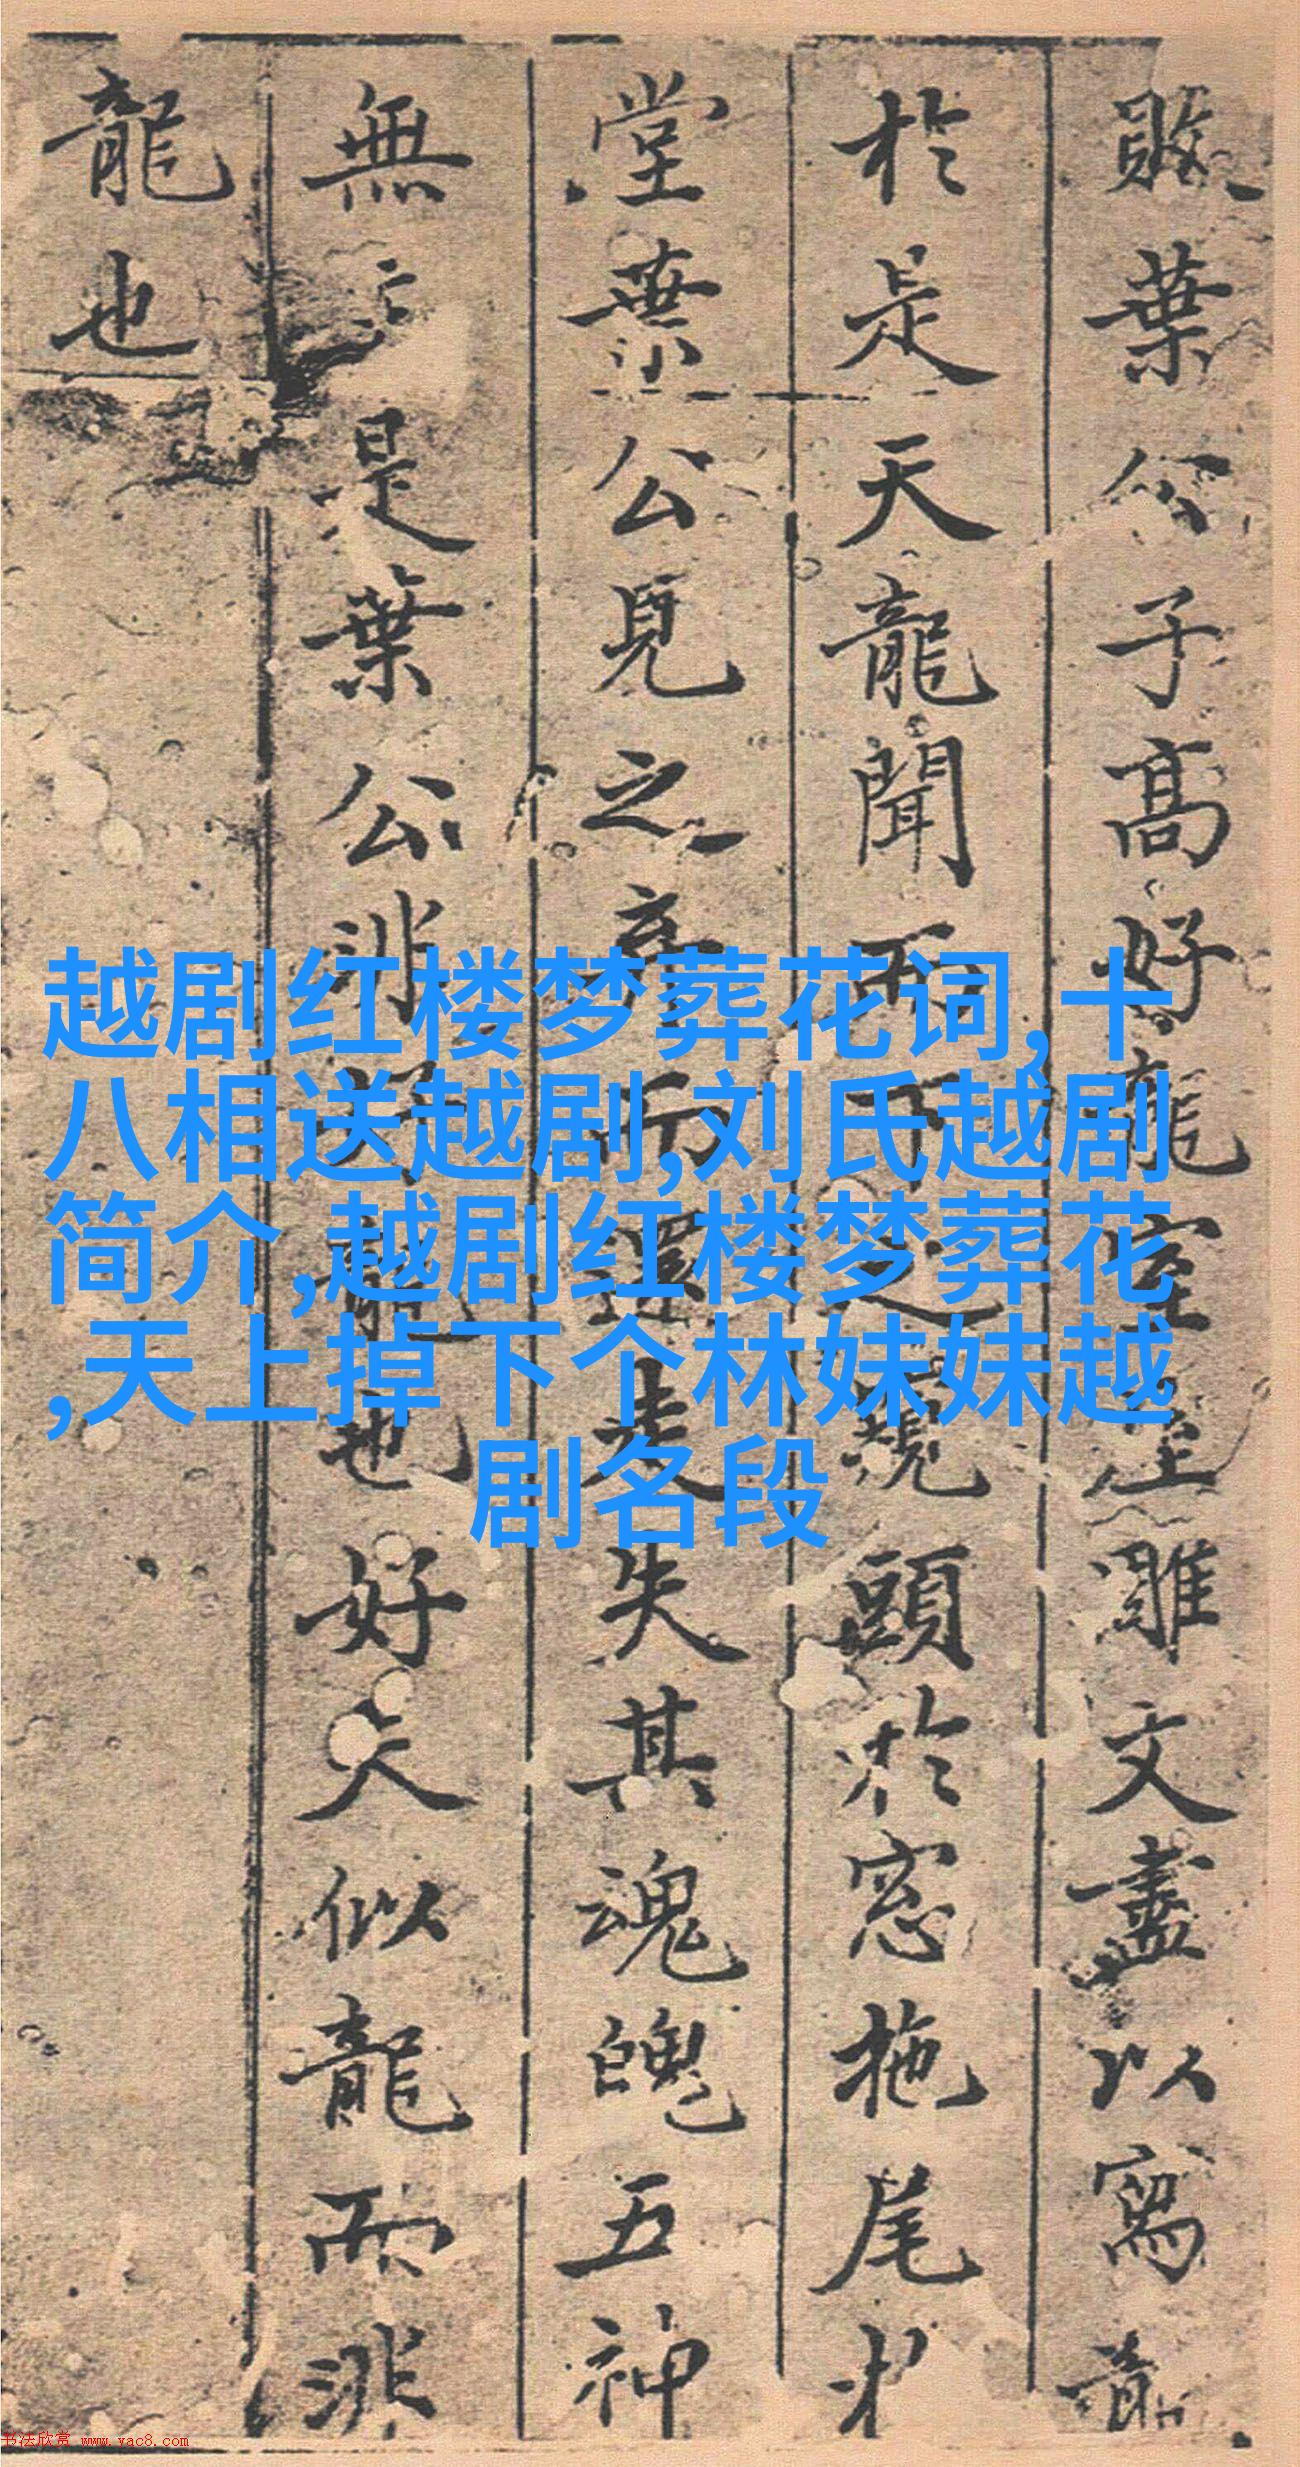 葉公子高好龍室屋雕文盡以寫龍
於是天龍聞而下之窺頭於窓拖尾於
堂葉公見之弃而還走失其魂魄五神
無是葉公非好龍也好夫似龍而非
龍也
越剧红楼梦葬花词,十
八相送越剧,刘氏越剧
简介,越剧红楼梦葬花
,天上掉下个林妹妹越
剧名段
书法欣赏 www.yac8.com